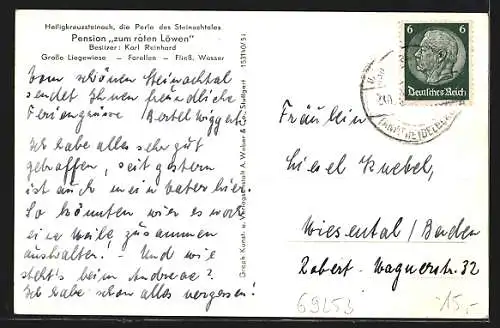 Heiligkreuzsteinach, die Perle des Steinachtales
Pension „zum roten Löwen"
Besitzer: Karl Reinhard
Große Liegewiese — Forellen — Fließ. Wasser
Vom schönen Steinachtal
sendet Ihnen freundliche
Feriengrüsse Bertel Wiggert.
Ich habe alles sehr gut
getroffen, seit gestern
ist auch mein Vater hier.
So könnten wir es noch
eine Weile zusammen
aushalten! - Und wie
steht's beim Andreae?
Ich habe schon alles vergessen!
Graph. Kunst- u. Verlagsanstalt A. Weber & Co., Stuttgart
6 6
Deutsches Reich
Fräulein
Liesel Knebel,
Wiesental / Baden
Robert-Wagnerstr. 32
69253
15,-